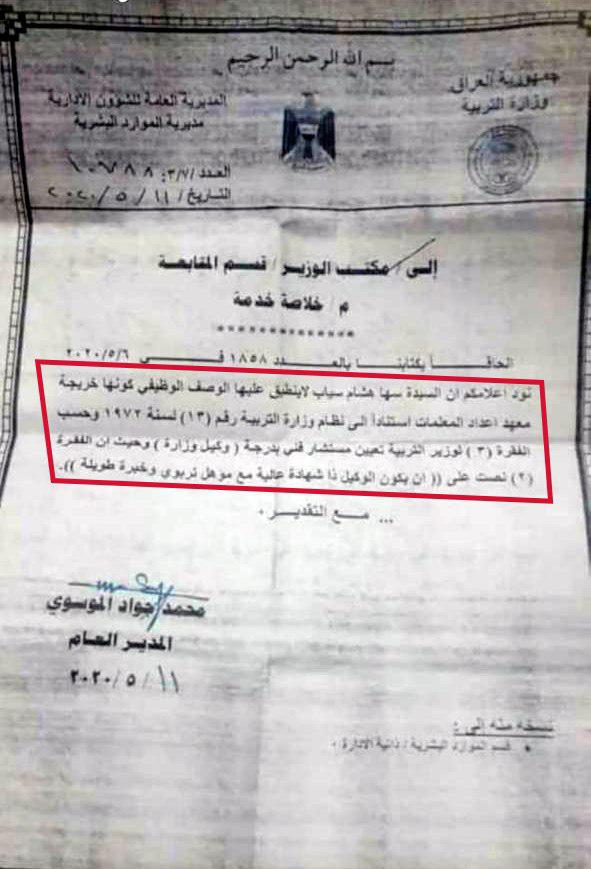 بسم الله الرحمن الرحيم
جمهورية العراق
وزارة التربية
المديرية العامة للشؤون الادارية
مديرية الموارد البشرية
العدد: ٣/٧/ ١٠٧٨٨
التاريخ/ ١١ / ٥ / ٢٠٢٠
إلى / مكتب الوزير / قسم المتابعة
م / خلاصة خدمة
**************
الحاقاً بكتابنا بالعدد ١٨٥٨ في ٢٠٢٠/٥/٦
نود اعلامكم ان السيدة سها هشام سياب لاينطبق عليها الوصف الوظيفي كونها خريجة
معهد اعداد المعلمات استناداً الى نظام وزارة التربية رقم (١٣) لسنة ١٩٧٢ وحسب
الفقرة (٣) لوزير التربية تعيين مستشار فني بدرجة ( وكيل وزارة ) وحيث ان الفقرة
(٢) نصت على (( ان يكون الوكيل ذا شهادة عالية مع مؤهل تربوي وخبرة طويلة )).
... مع التقدير .
محمد جواد الموسوي
المدير العام
١١ / ٥ / ٢٠٢٠
نسخه منه إلى :
• قسم الموارد البشرية / ذاتية الادارة .